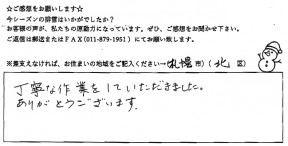 ☆ご感想をお願いします☆
今シーズンの排雪はいかがでしたか?
お客様の声が、私たちの原動力になっています。ぜひ、ご感想をお聞かせ下さい。
ご返信は郵送またはFAX(011-879-1951)にてお願い致します。
※差支えなければ、お住まいの地域をご記入ください→ 札幌 市)( 北 区)
丁寧な作業をしていただきました。
ありがとうございます.